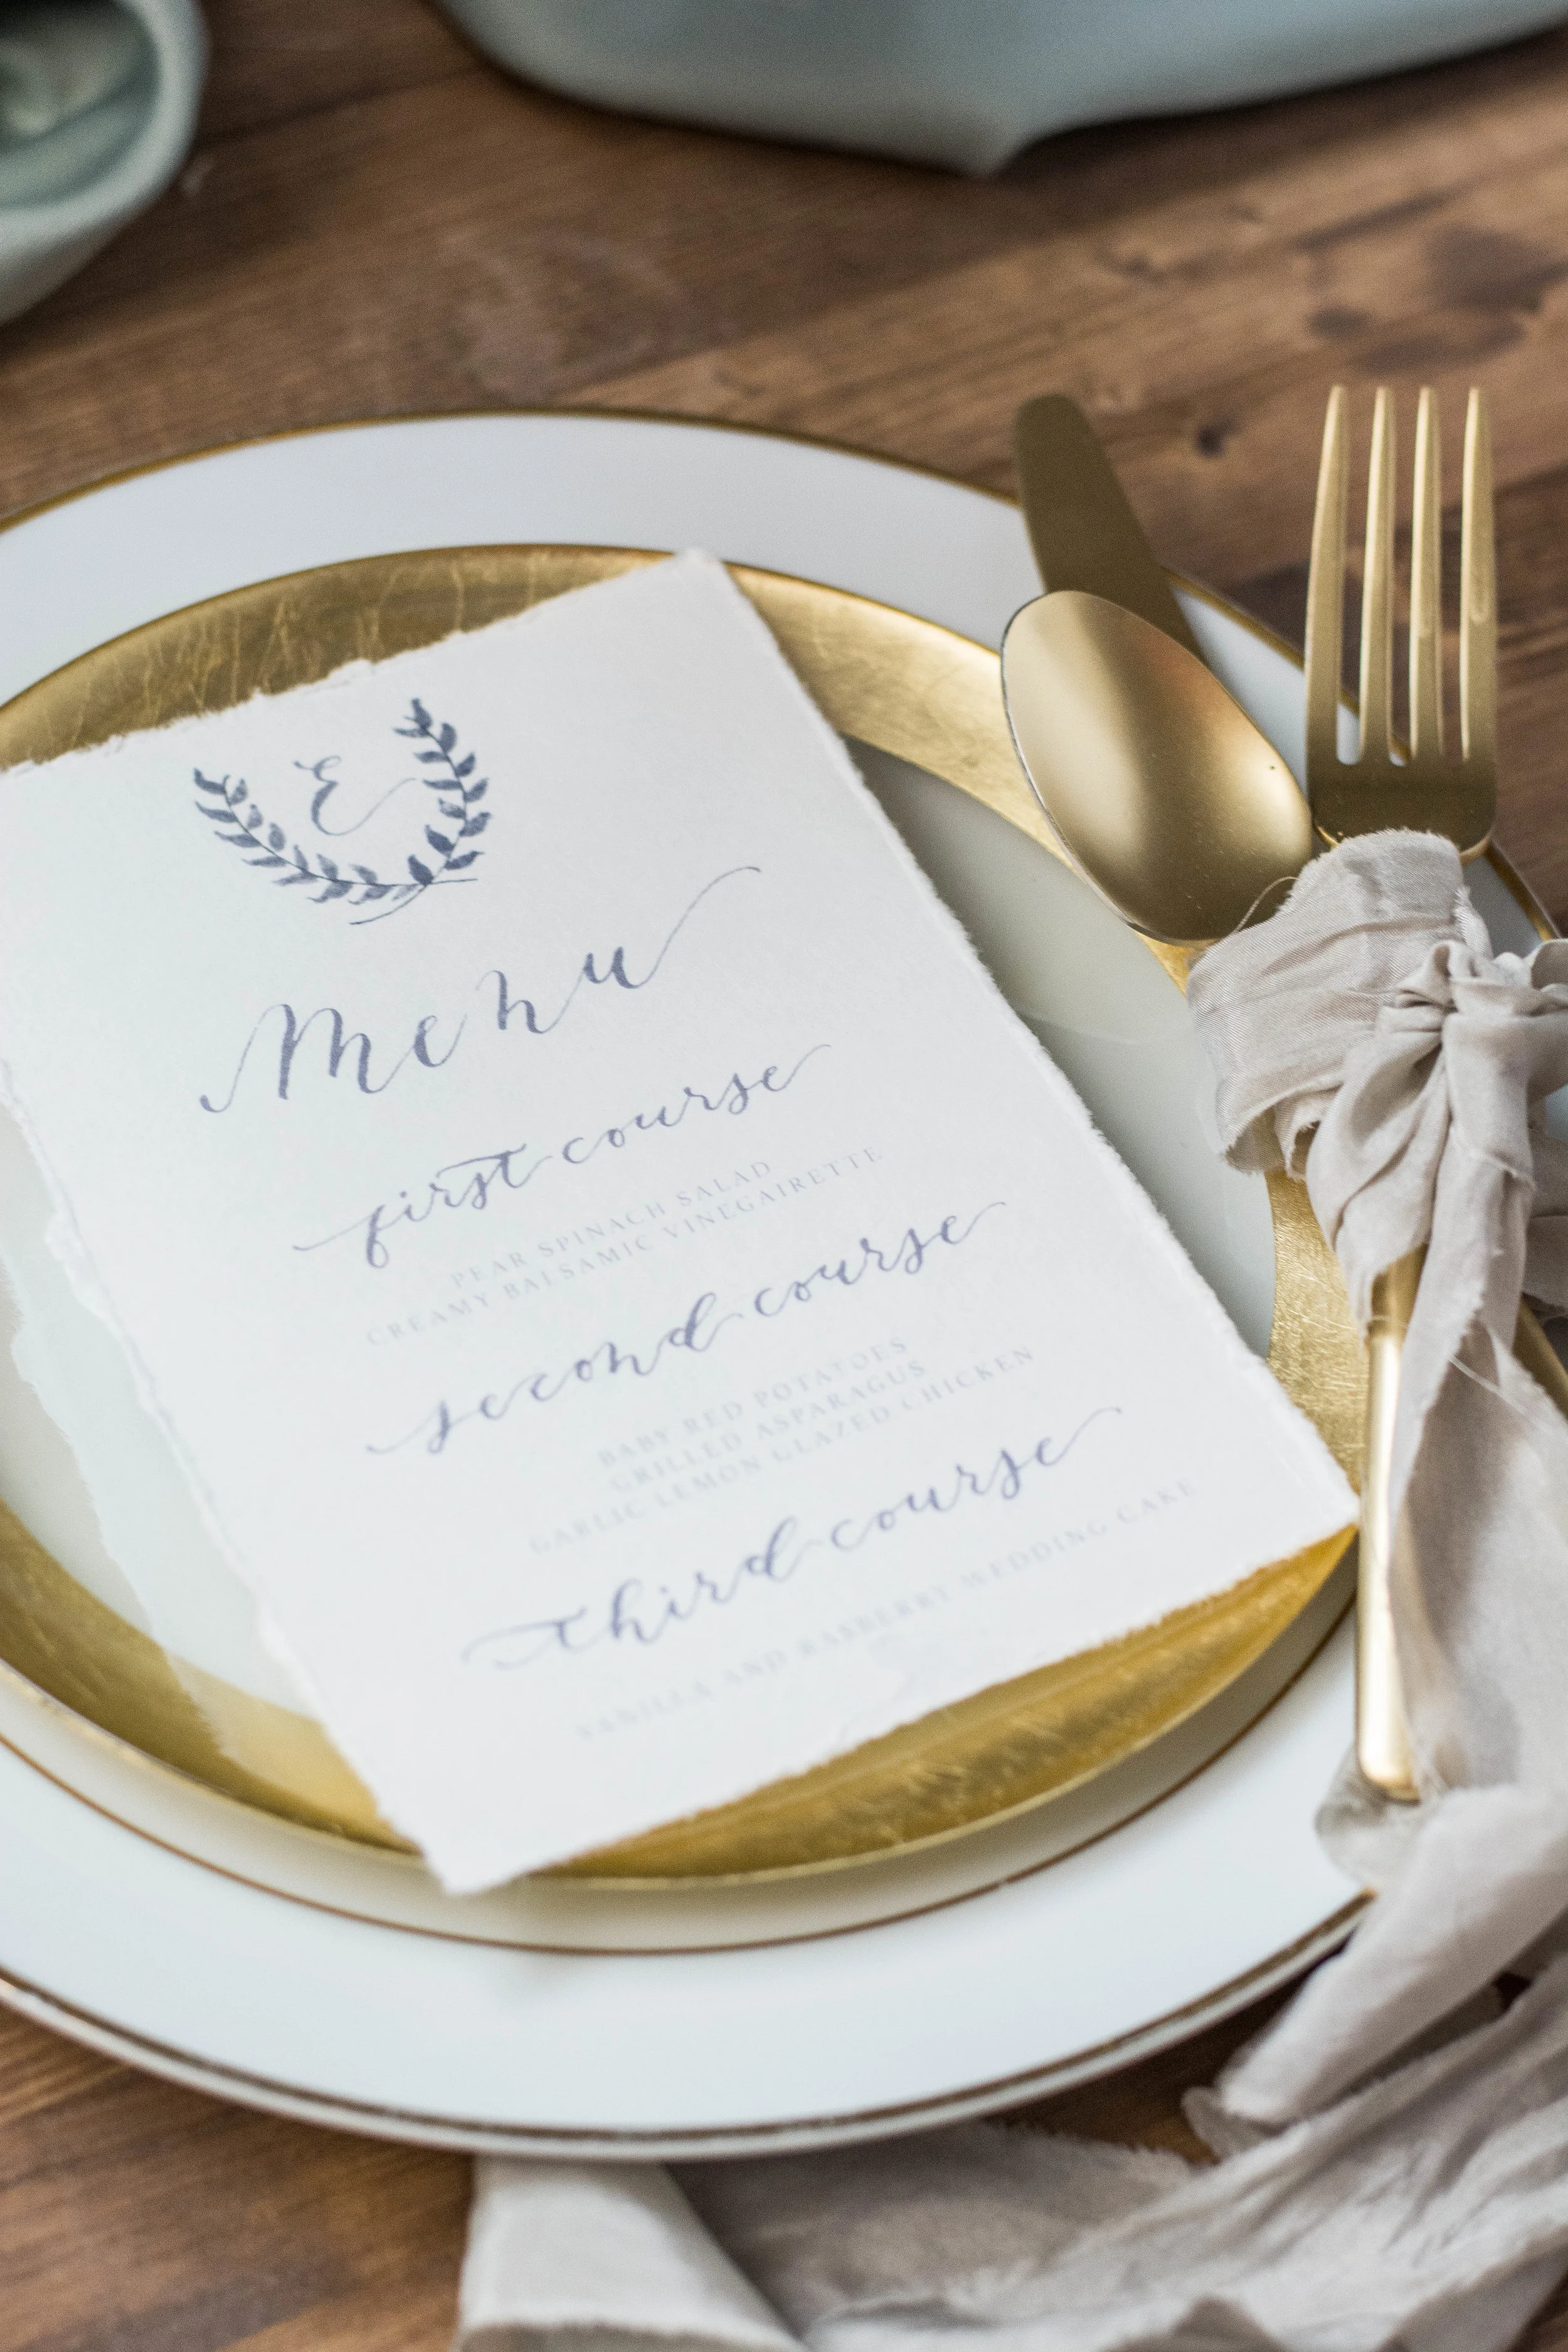 E
Menu
first course
PEAR SPINACH SALAD
CREAMY BALSAMIC VINEGAIRETTE
second course
BABY RED POTATOES
GRILLED ASPARAGUS
GARLIC LEMON GLAZED CHICKEN
third course
VANILLA AND RASBERRY WEDDING CAKE